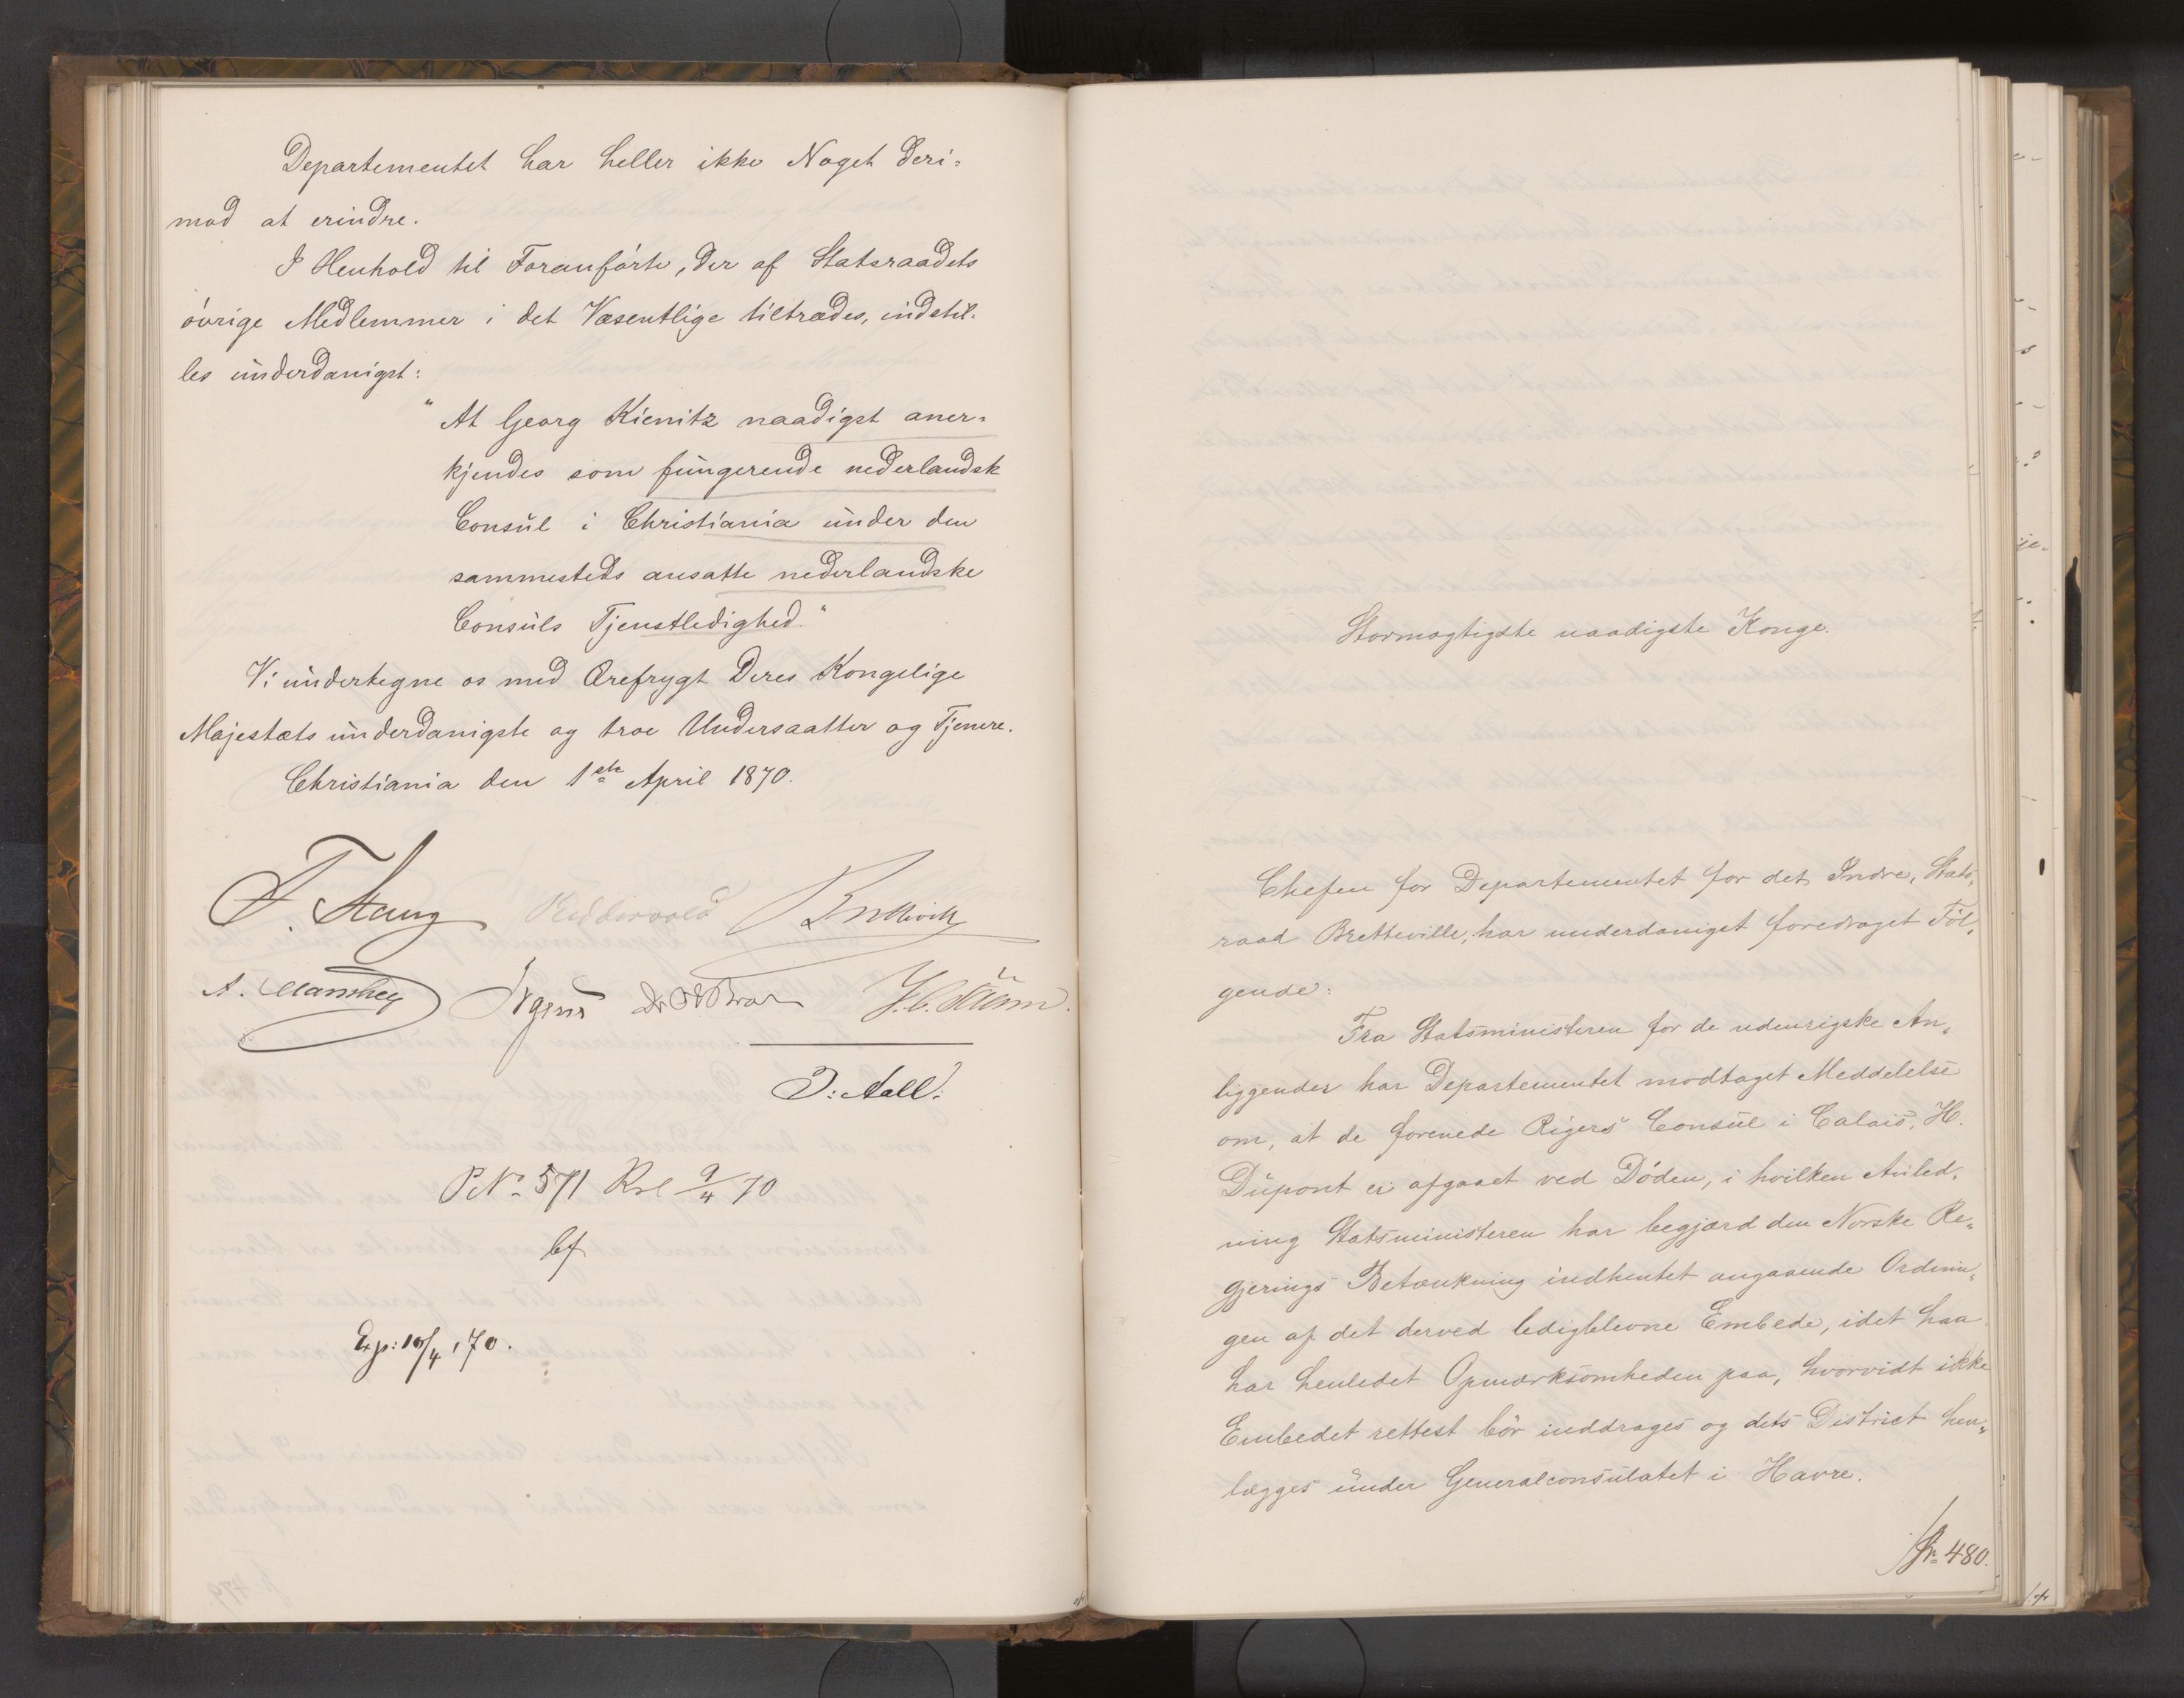 Departementet har heller ikke Noget deri=
mod at erindre.
I Henhold til Foranførte, der af Statsraadets
øvrige Medlemmer i det Væsentlige tiltrædes, indstil=
les underdanigst:
"At Georg Kienitz naadigst aner=
kjendes som fungerende nederlandsk
Consul i Christiania under den
sammesteds ansatte nederlandske
Consuls Tjenstledighed."
Vi undertegne os med Ærefrygt Deres Kongelige
Majestæts underdanigste og troe Undersaatter og Tjenere.
Christiania den 1ste April 1870.
F. Stang Riddervold
Irgens
J: Aall:
P.No 571 Rsl 9/4 70
bf
Exp: 10/4, 70.
Stormægtigste naadigste Konge.
Chefen for Departementet for det Indre, Stats,
raad Bretteville, har underdanigst foredraget Føl,
gende:
Fra Statsministeren for de udenrigske An,,
liggender har Departementet modtaget Meddelelse
om, at de forenede Rigers Consul i Calais, H.
Dupont er afgaaet ved Døden, i hvilken Anled,
ning Statsministeren har begjært den Norske Re,,
gjerings Betænkning indhentet angaaende Ordnin,,
gen af det derved ledigblevne Embede, idet han
har henledet Opmærksomheden paa, hvorvidt ikke
Embedet rettest bør inddrages og dets District hen,,
lægges under Generalconsulatet i Havre.
No 480.